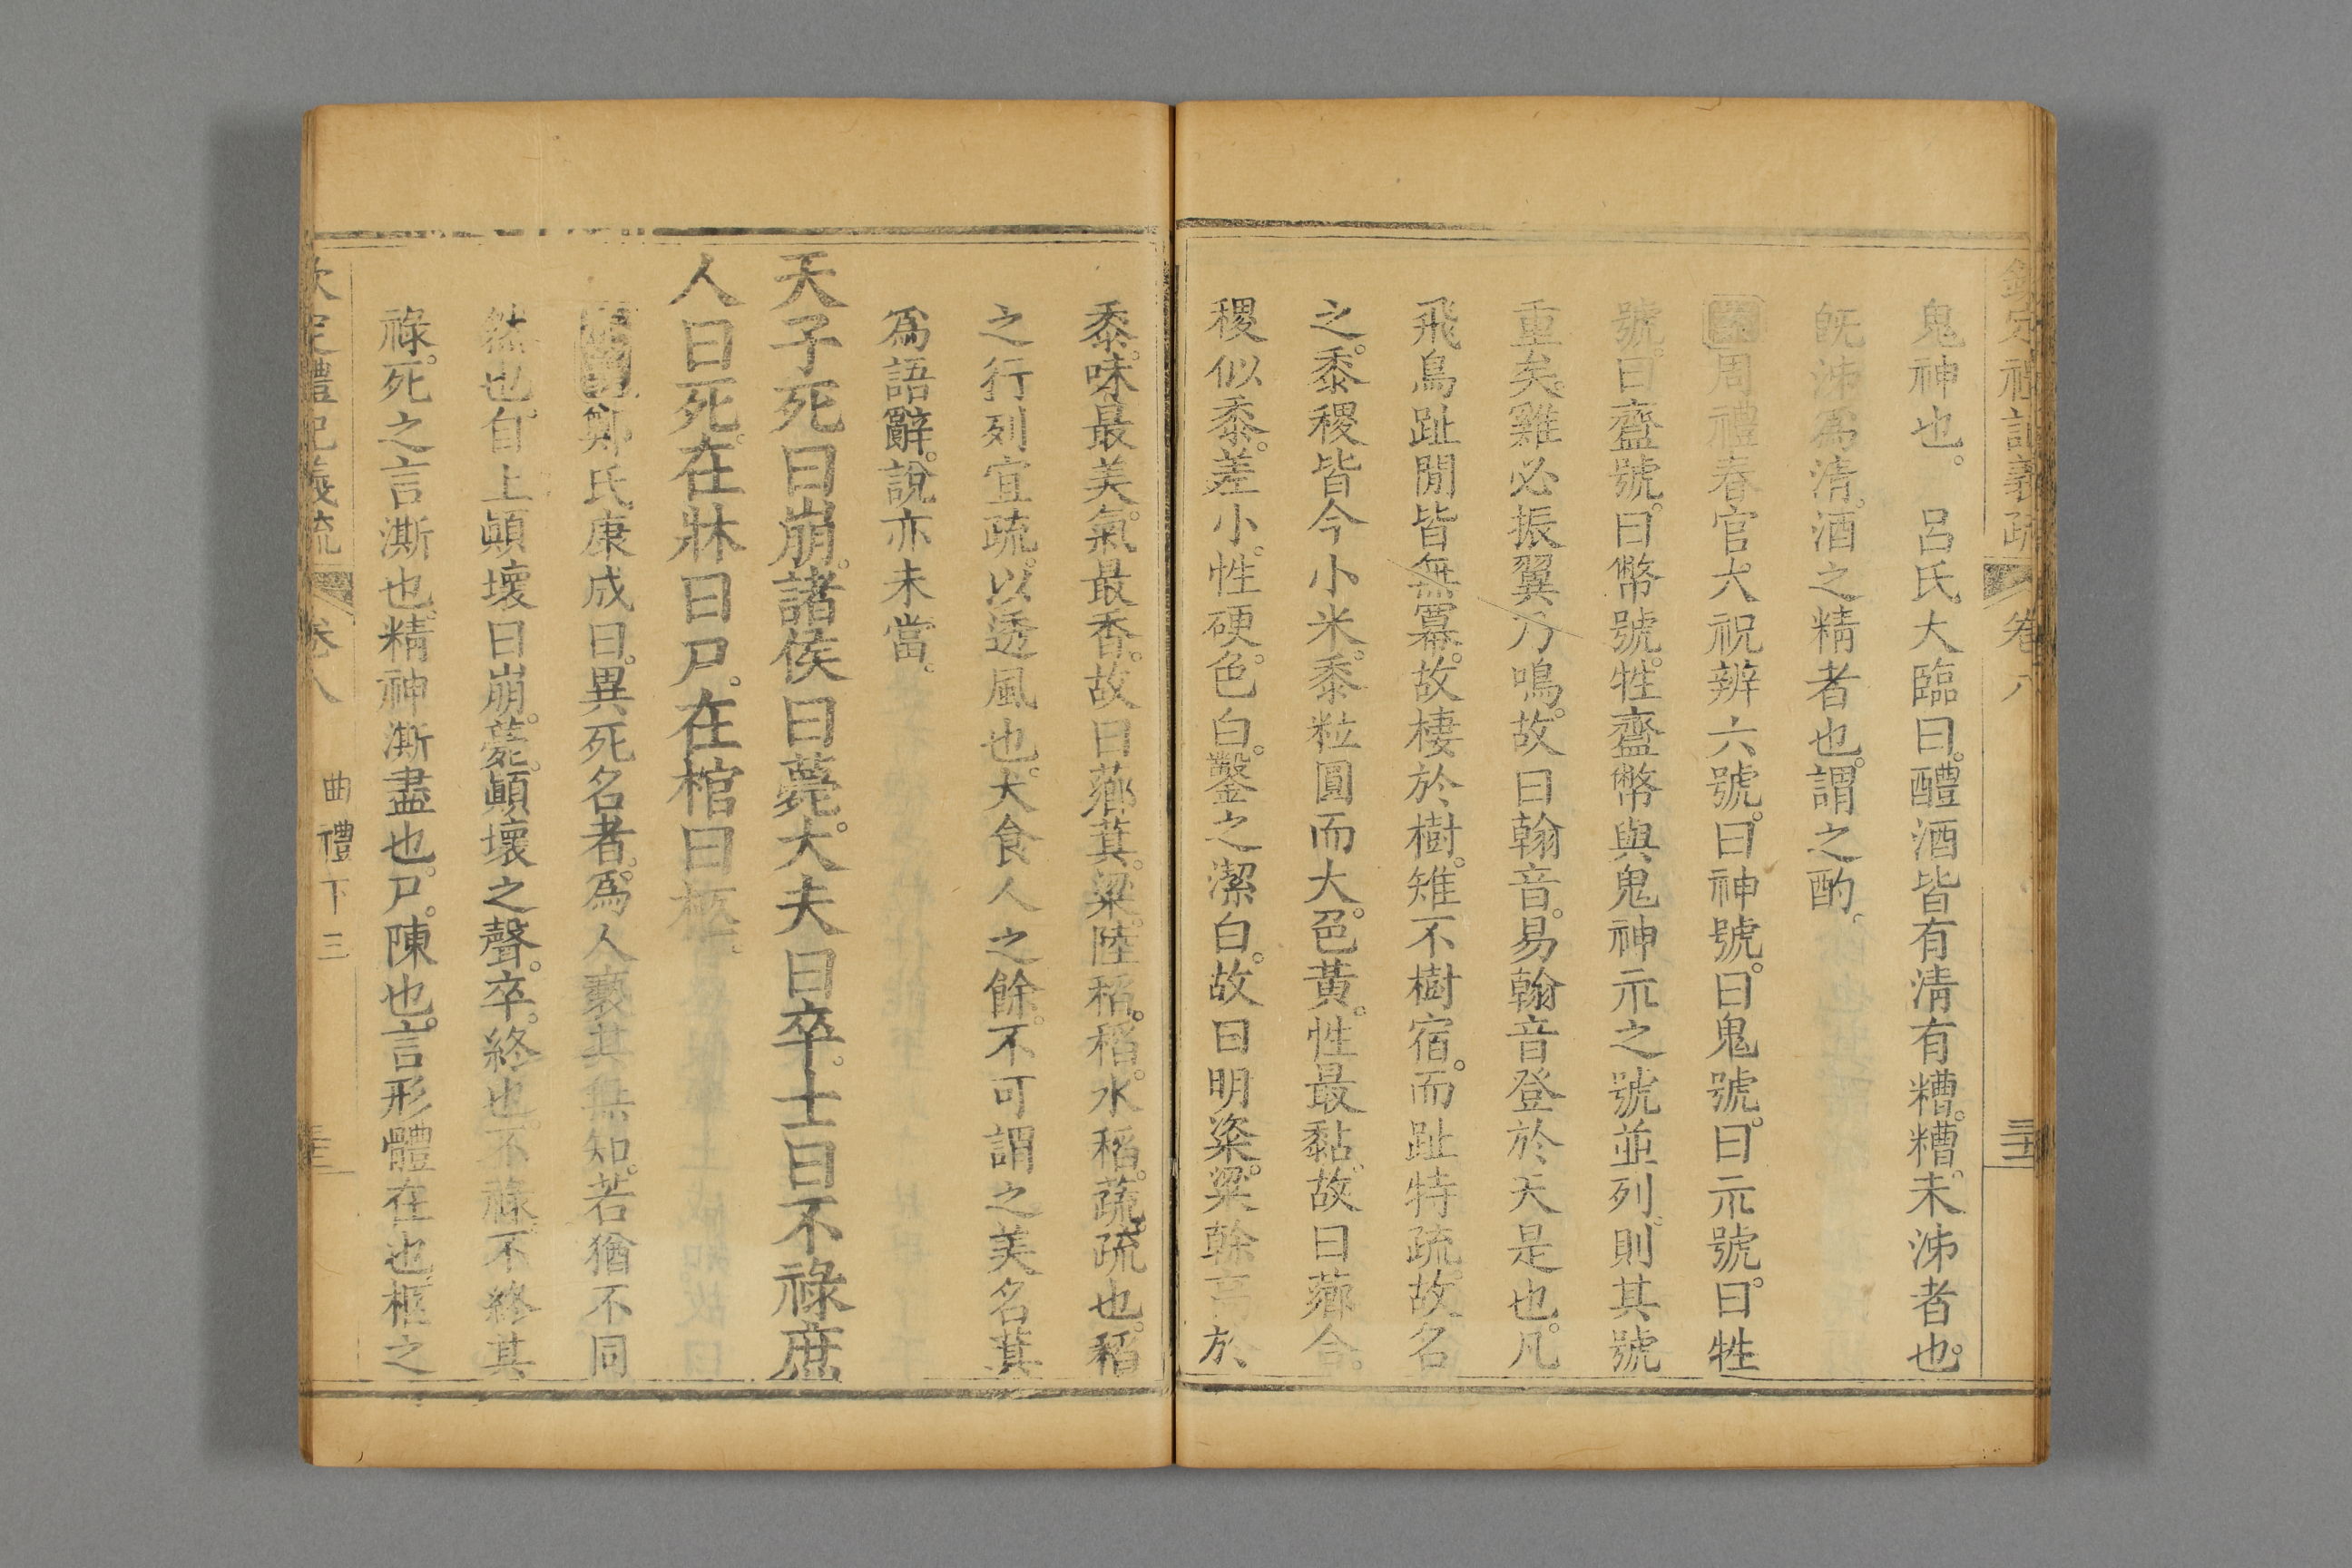 欽定禮記義疏 卷八 三十
鬼神也。 呂氏大臨曰。醴酒皆有淸有糟。糟。未泲者也。
旣泲爲淸。酒之精者也。謂之酌。
案周禮春官大祝辨六號。曰神號。曰鬼號。曰示號。曰牲
號。曰齍號。曰幣號。牲齍幣與鬼神示之號並列。則其號
重矣。雞必振翼乃鳴。故曰翰音。易翰音登於天是也。凡
飛鳥趾閒皆無冪。故棲於樹。雉不樹宿。而趾特疏。故名
之。黍稷皆今小米。黍粒圓而大。色黃。性最黏。故曰薌合。
稷似黍。差小。性硬。色白。鑿之潔白。故曰明粢。粱榦高於
黍。味最美。氣最香。故曰薌萁。粱。陸稻。稻。水稻。蔬。疏也。稻
之行列宜疏。以透風也。犬食人之餘。不可謂之美名。萁
爲語辭。說亦未當。
天子死曰崩。諸侯曰薨。大夫曰卒。士曰不祿。庶
人曰死。在牀曰尸。在棺曰柩。
鄭氏康成曰。異死名者。爲人褻其無知。若猶不同
然也。自上顚壞曰崩。薨。顚壞之聲。卒。終也。不祿。不終其
祿。死之言澌也。精神澌盡也。尸。陳也。言形體在也。柩之
欽定禮記義疏 卷八 曲禮下三